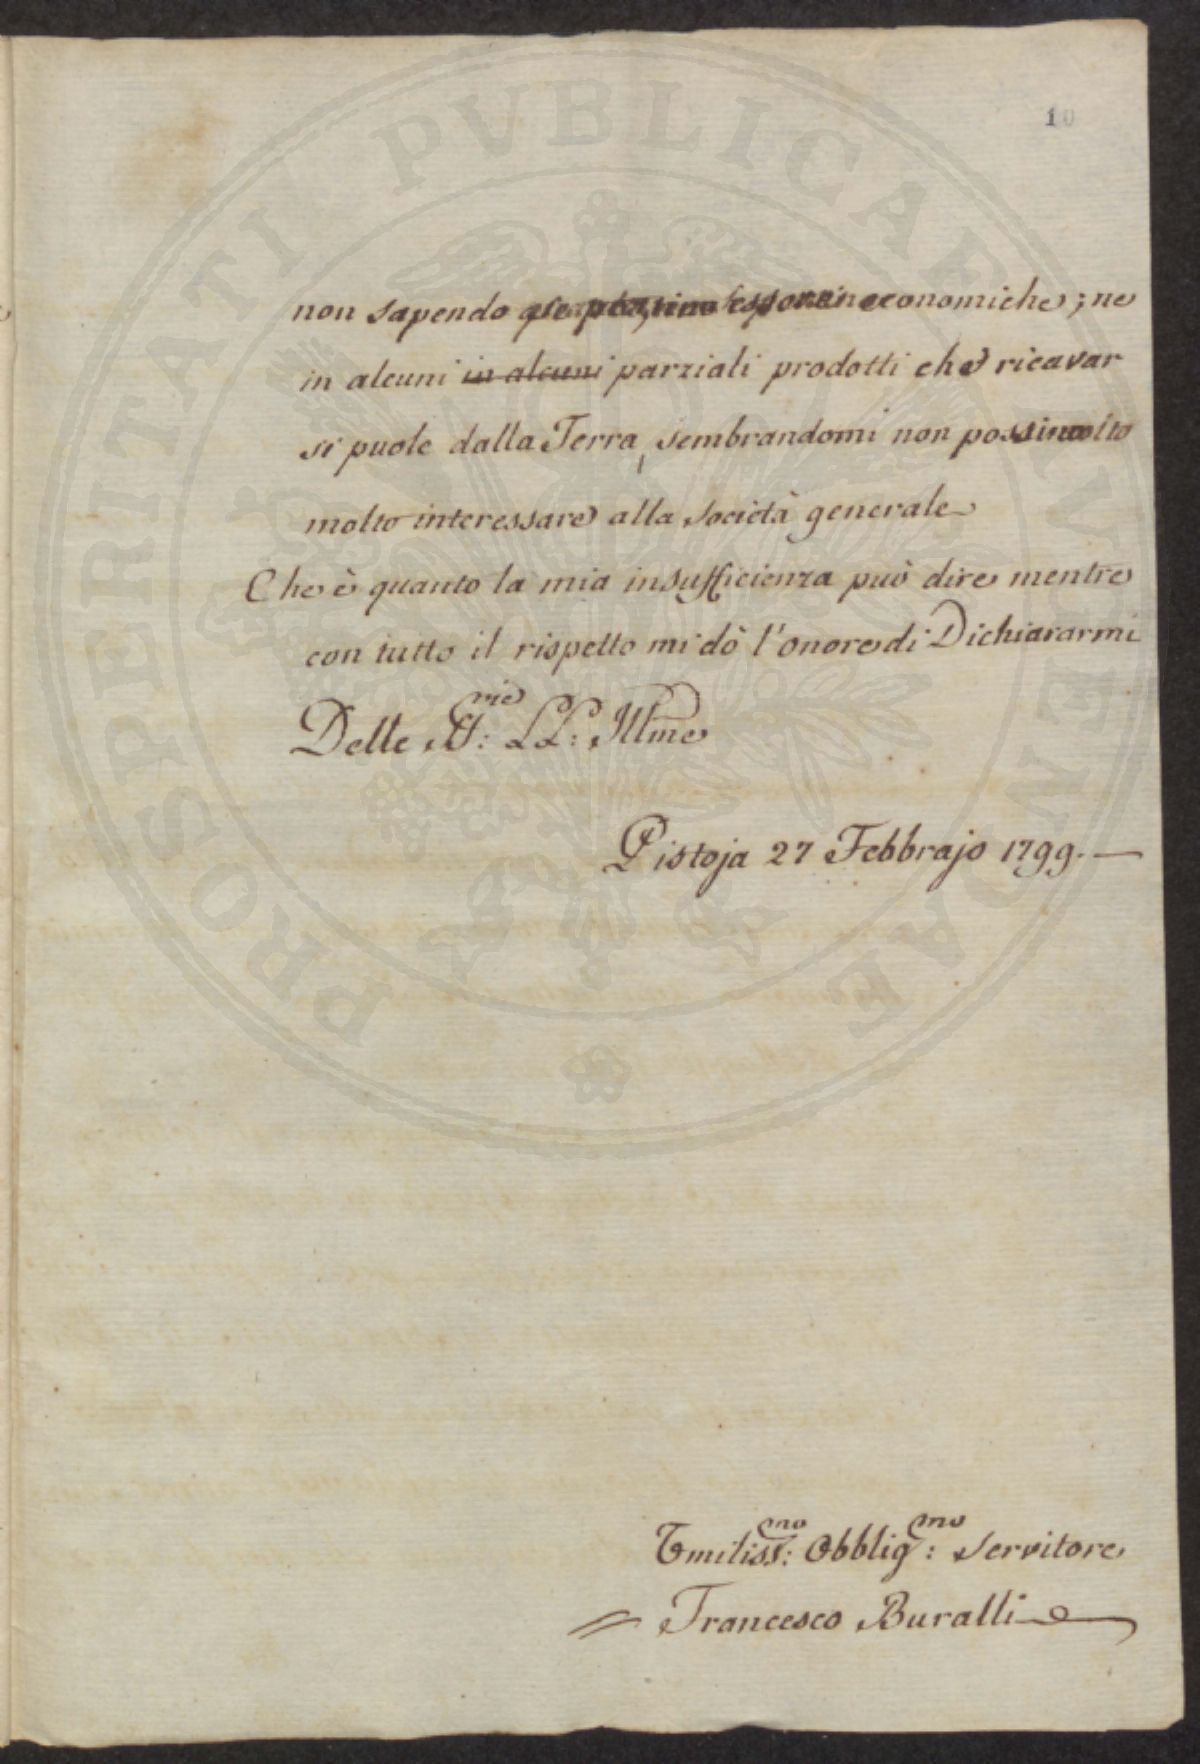 10
non sapendo economiche; ne
in alcuni in alcuni parziali prodotti che ricavar
si puole dalla Terra, sembrandomi non possino
molto interessare alla società generale
Che è quanto la mia insufficienza può dire mentre
con tutto il rispetto mi dò l'onore di Dichiararmi
Delle S:rie LL: Illme
Pistoja 27 Febbrajo 1799.—
Umiliss:mo Obblig:mo Servitore
Francesco Buralli
PROSPERITATI PVBLICAE AVGENDAE